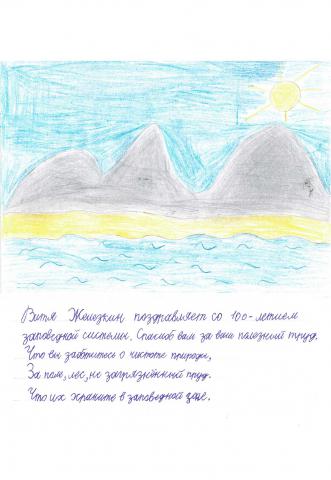 Витя Железкин поздравляет со 100-летием
заповедной системы. Спасиб вам за ваш полезный труд.
Что вы заботитесь о чистоте природы,
За поле, лес, не загрязнённый пруд.
Что их храните в заповедной